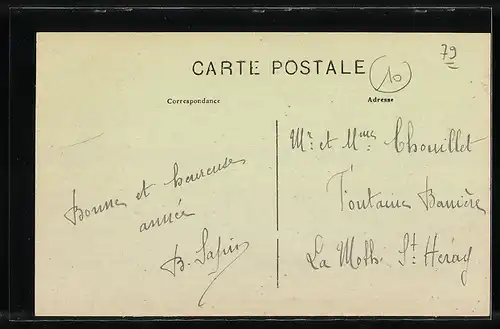 79
CARTE POSTALE
10
Correspondance
Adresse
Mr. et Mme. Chouillet
Fontaine Banière
La Mothe St. Héray
Bonne et heureuse
année
B. Sapin